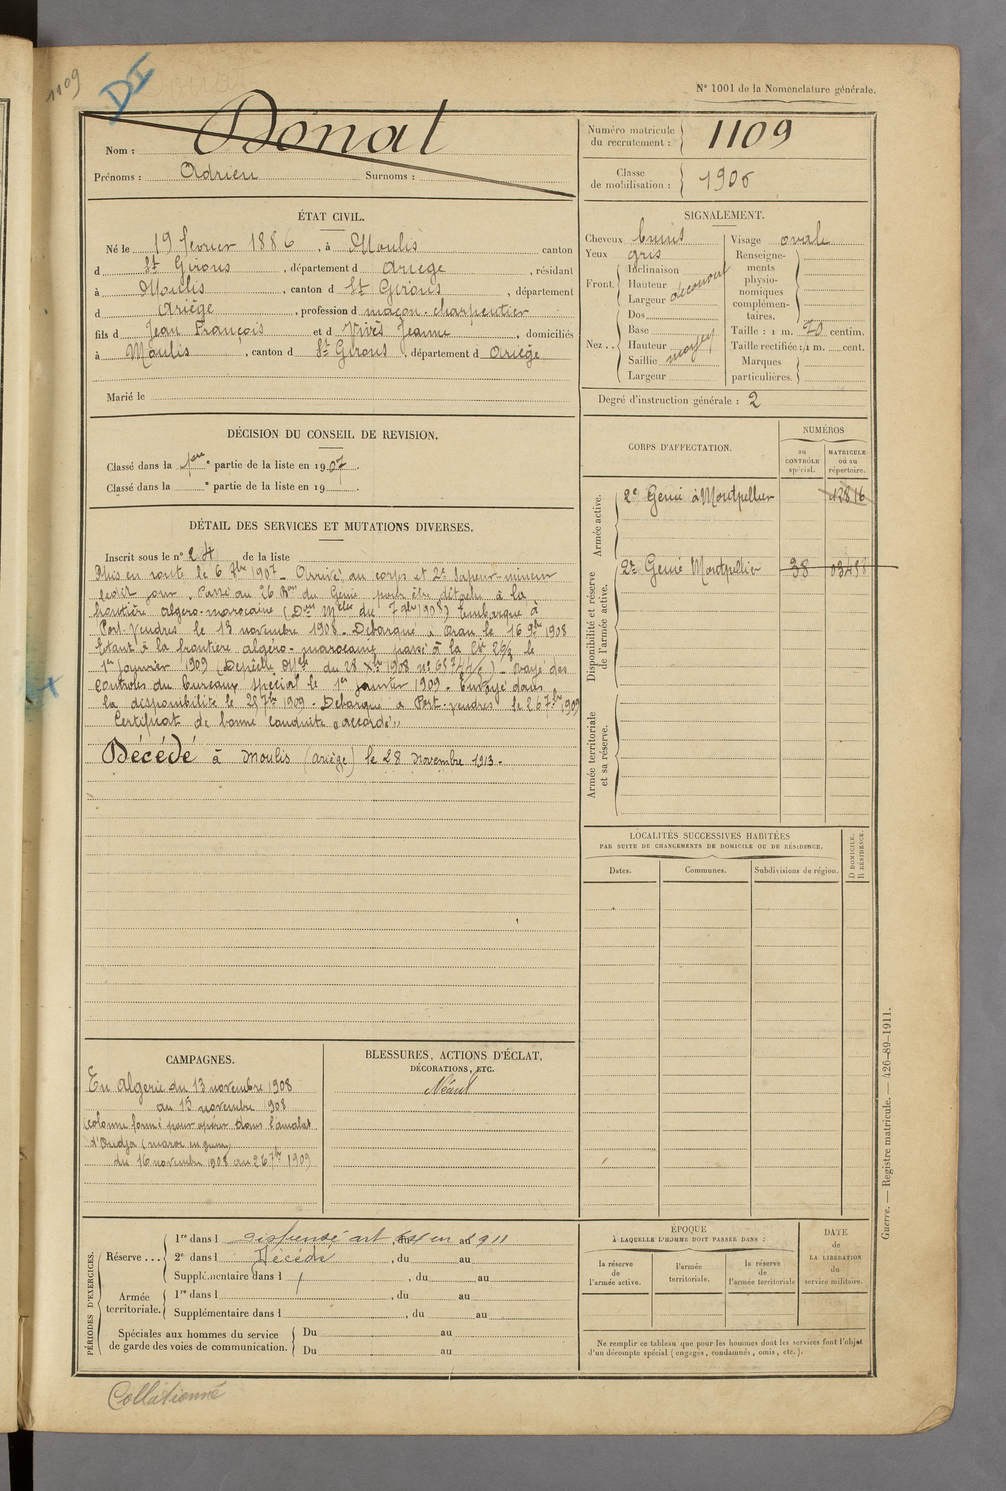 1109
DI
N° 1001 de la Nomenclature générale.
Nom : Donat
Prénoms : Adrien Surnoms :
Numéro matricule du recrutement : 1109
Classe de mobilisation : 1906
ÉTAT CIVIL.
Né le 19 février 1886, à Moulis canton
d St Girons, département d Ariège, résidant
à Moulis, canton d St Girons, département
d Ariège, profession d maçon-charpentier
fils d Jean François et d Vivès Jeanne, domiciliés
à Moulis, canton d St Girons, département d Ariège
Marié le
SIGNALEMENT.
Cheveux bruns
Yeux gris
Front. Inclinaison
Hauteur
Largeur découvert
Nez.. Dos
Base
Hauteur
Saillie moyen
Largeur
Visage ovale
Renseignements physionomiques complémentaires.
Taille : 1 m. 70 centim.
Taille rectifiée : 1 m. cent.
Marques particulières.
Degré d'instruction générale : 2
DÉCISION DU CONSEIL DE REVISION.
Classé dans la 1ère partie de la liste en 1907.
Classé dans la e partie de la liste en 19 .
CORPS D'AFFECTATION.
NUMÉROS
au CONTRÔLE spécial.
MATRICULE ou au répertoire.
Armée active.
2e Génie à Montpellier 12816
Disponibilité et réserve de l'armée active.
2e Génie Montpellier 38
Armée territoriale et sa réserve.
DÉTAIL DES SERVICES ET MUTATIONS DIVERSES.
Inscrit sous le n° 24 de la liste
Mis en route le 6 8bre 1907 - Arrivé au corps et 2e sapeur-mineur
ledit jour. Passé au 26 Bon du Génie pour être détaché à la
frontière algéro-marocaine (Don Mlle du 7 1908) Embarqué à
Port-Vendres le 13 novembre 1908. Débarqué à Oran le 16 9bre 1908
Étant à la frontière algéro-marocaine passé à la Cie 26/2 le
1er Janvier 1909 (Dépêche Mlle du 28 Xbre 1908 n° ) - Rayé des
contrôles du bureau spécial le 1er janvier 1909. Envoyé dans
la disponibilité le 25 7bre 1909 - Débarqué à Port-Vendres le 26 7bre 1909
Certificat de bonne conduite "accordé"
Décédé à Moulis (Ariège) le 28 Novembre 1913.
LOCALITÉS SUCCESSIVES HABITÉES
PAR SUITE DE CHANGEMENTS DE DOMICILE OU DE RÉSIDENCE.
Dates.
Communes.
Subdivisions de région.
D DOMICILE.
R RÉSIDENCE.
CAMPAGNES.
En Algérie du 13 novembre 1908
au 15 novembre 1908
Colonne formée pour opérer dans l'amalat
d'Oudja (maroc en guerre)
du 16 novembre 1908 au 26 7bre 1909
BLESSURES, ACTIONS D'ÉCLAT,
DÉCORATIONS, ETC.
Néant
PÉRIODES D'EXERCICES.
Réserve... 1re dans l dispensé art en 1911
2e dans l Décédé, du au
Supplémentaire dans l , du au
Armée territoriale. 1re dans l , du au
Supplémentaire dans l , du au
Spéciales aux hommes du service de garde des voies de communication. Du au
Du au
ÉPOQUE
À LAQUELLE L'HOMME DOIT PASSER DANS :
la réserve de l'armée active.
l'armée territoriale.
la réserve de l'armée territoriale
DATE de LA LIBÉRATION du service militaire.
Ne remplir ce tableau que pour les hommes dont les services font l'objet
d'un décompte spécial (engagés, condamnés, omis, etc.).
Guerre. — Registre matricule. — 426-89-1911.
Collationné